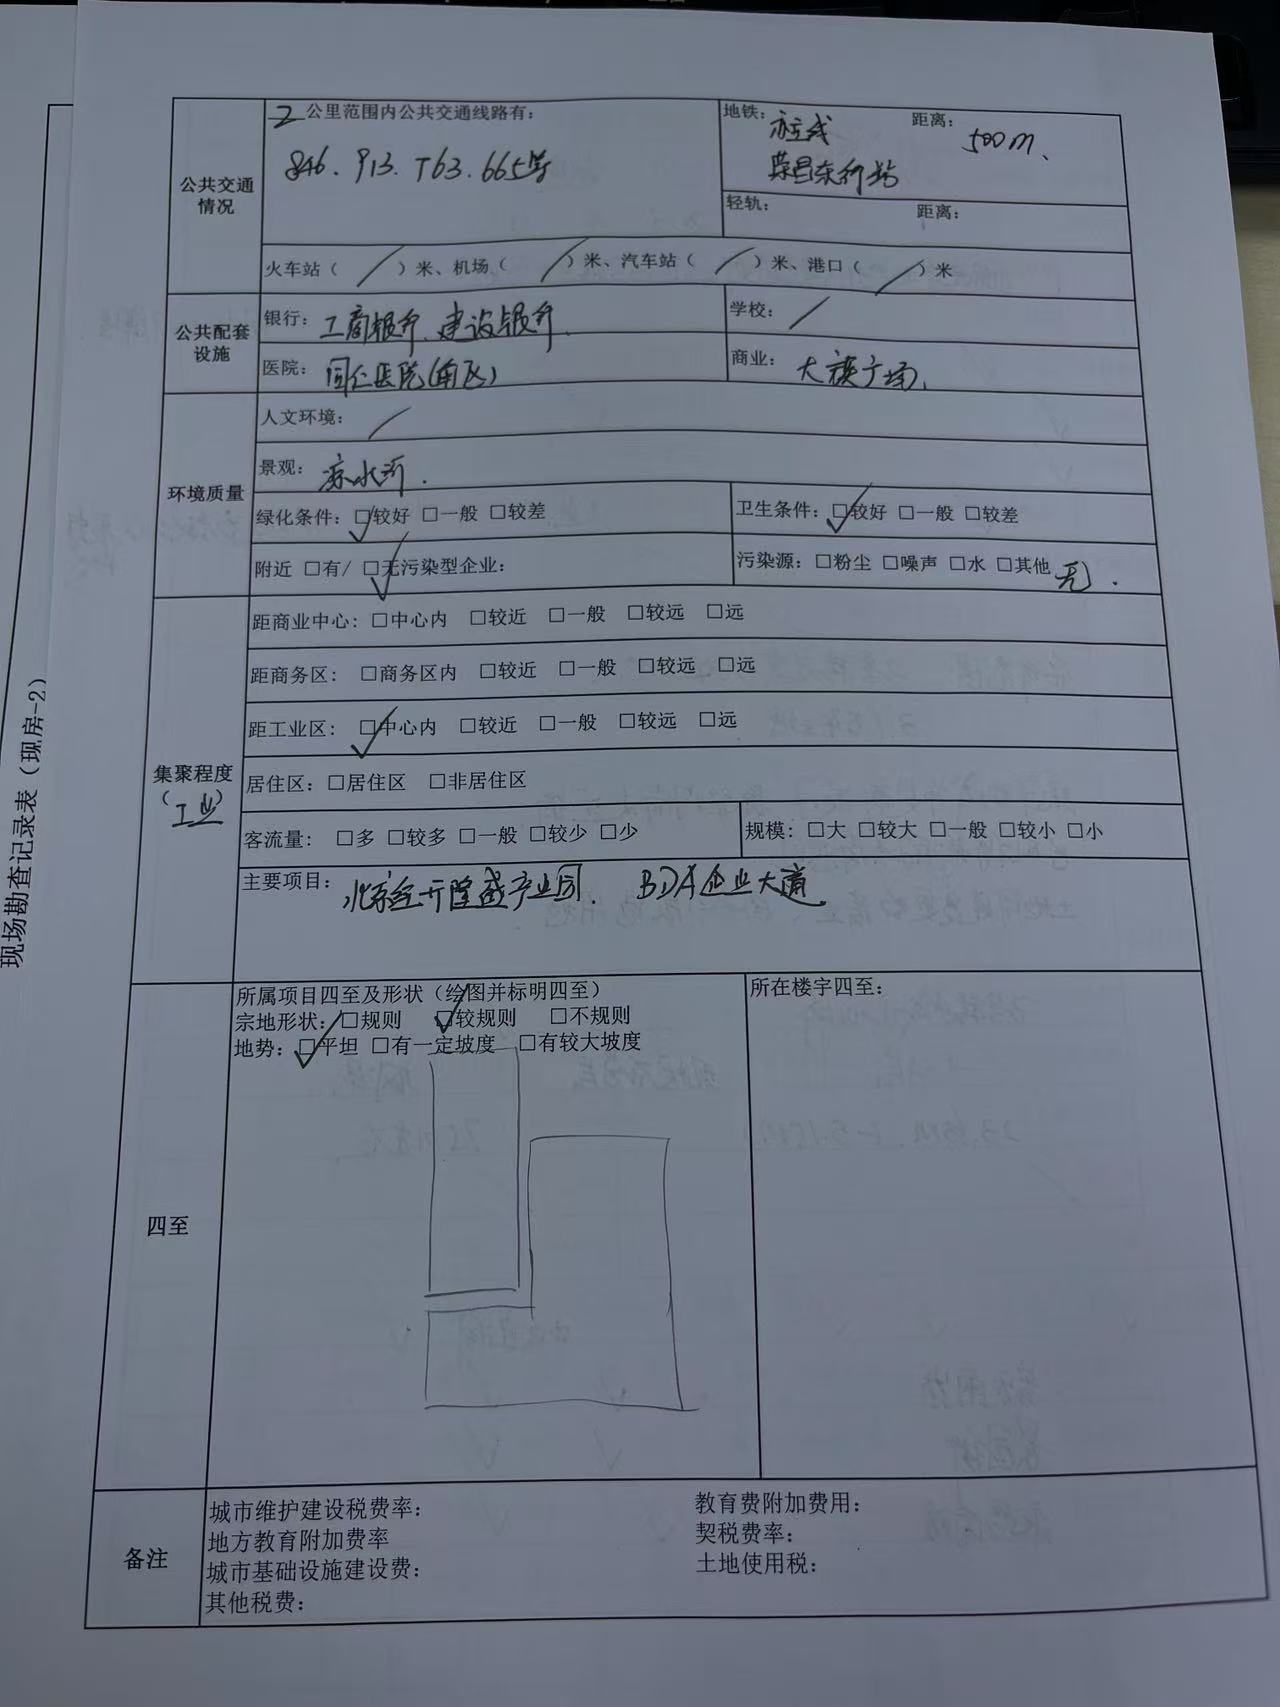 现场勘查记录表（现房-2）
公共交通情况
2公里范围内公共交通线路有：
846. 913. T63. 665等
地铁：亦庄线 距离：500m、
荣昌东街站
轻轨： 距离：
火车站（／）米、机场（／）米、汽车站（／）米、港口（／）米
公共配套设施
银行：工商银行、建设银行. 学校：／
医院：同仁医院(南区) 商业：大族广场.
环境质量
人文环境：／
景观：凉水河.
绿化条件：☑较好 □一般 □较差 卫生条件：☑较好 □一般 □较差
附近 □有/ ☑无污染型企业： 污染源：□粉尘 □噪声 □水 □其他 无.
集聚程度
（工业）
距商业中心：□中心内 □较近 □一般 □较远 □远
距商务区：□商务区内 □较近 □一般 □较远 □远
距工业区：☑中心内 □较近 □一般 □较远 □远
居住区：□居住区 □非居住区
客流量：□多 □较多 □一般 □较少 □少 规模：□大 □较大 □一般 □较小 □小
主要项目：北京经开隆盛产业园. BDA企业大道
四至
所属项目四至及形状（绘图并标明四至）
宗地形状：□规则 ☑较规则 □不规则
地势：☑平坦 □有一定坡度 □有较大坡度
所在楼宇四至：
备注
城市维护建设税费率： 教育费附加费用：
地方教育附加费率 契税费率：
城市基础设施建设费： 土地使用税：
其他税费：